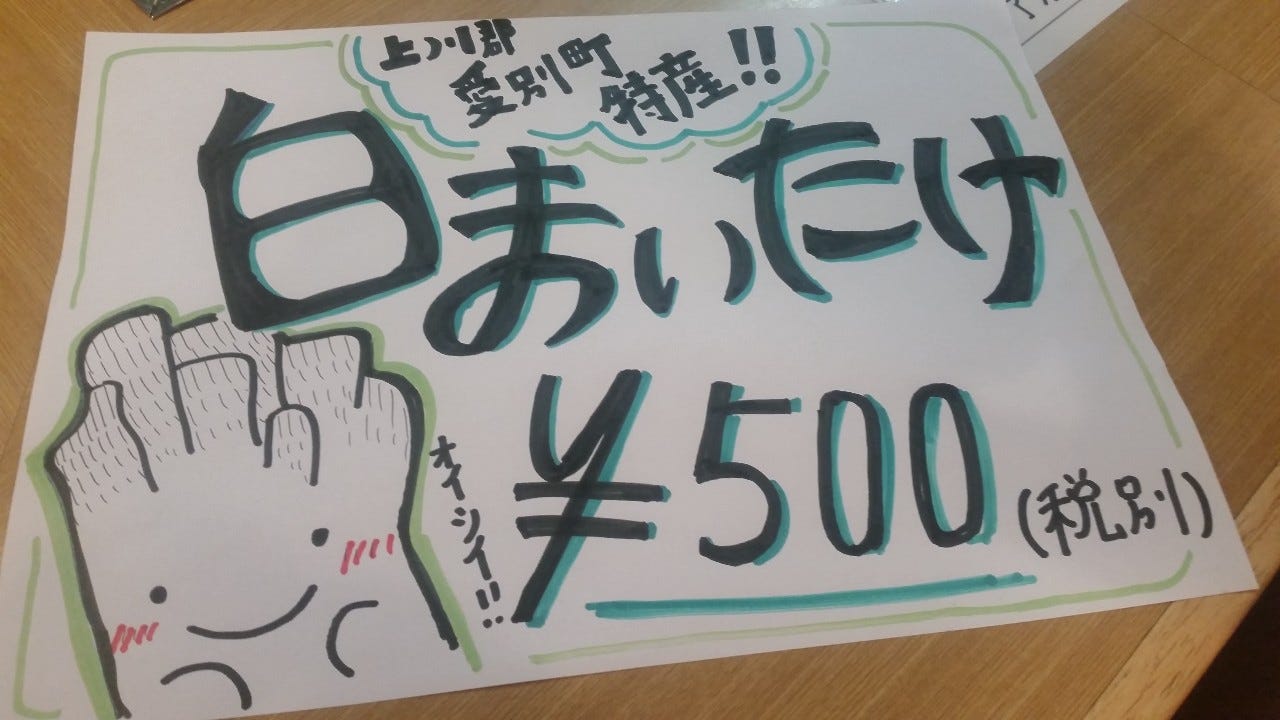 上川郡
愛別町
特産!!
白まいたけ
¥500(税別)
オイシイ!!